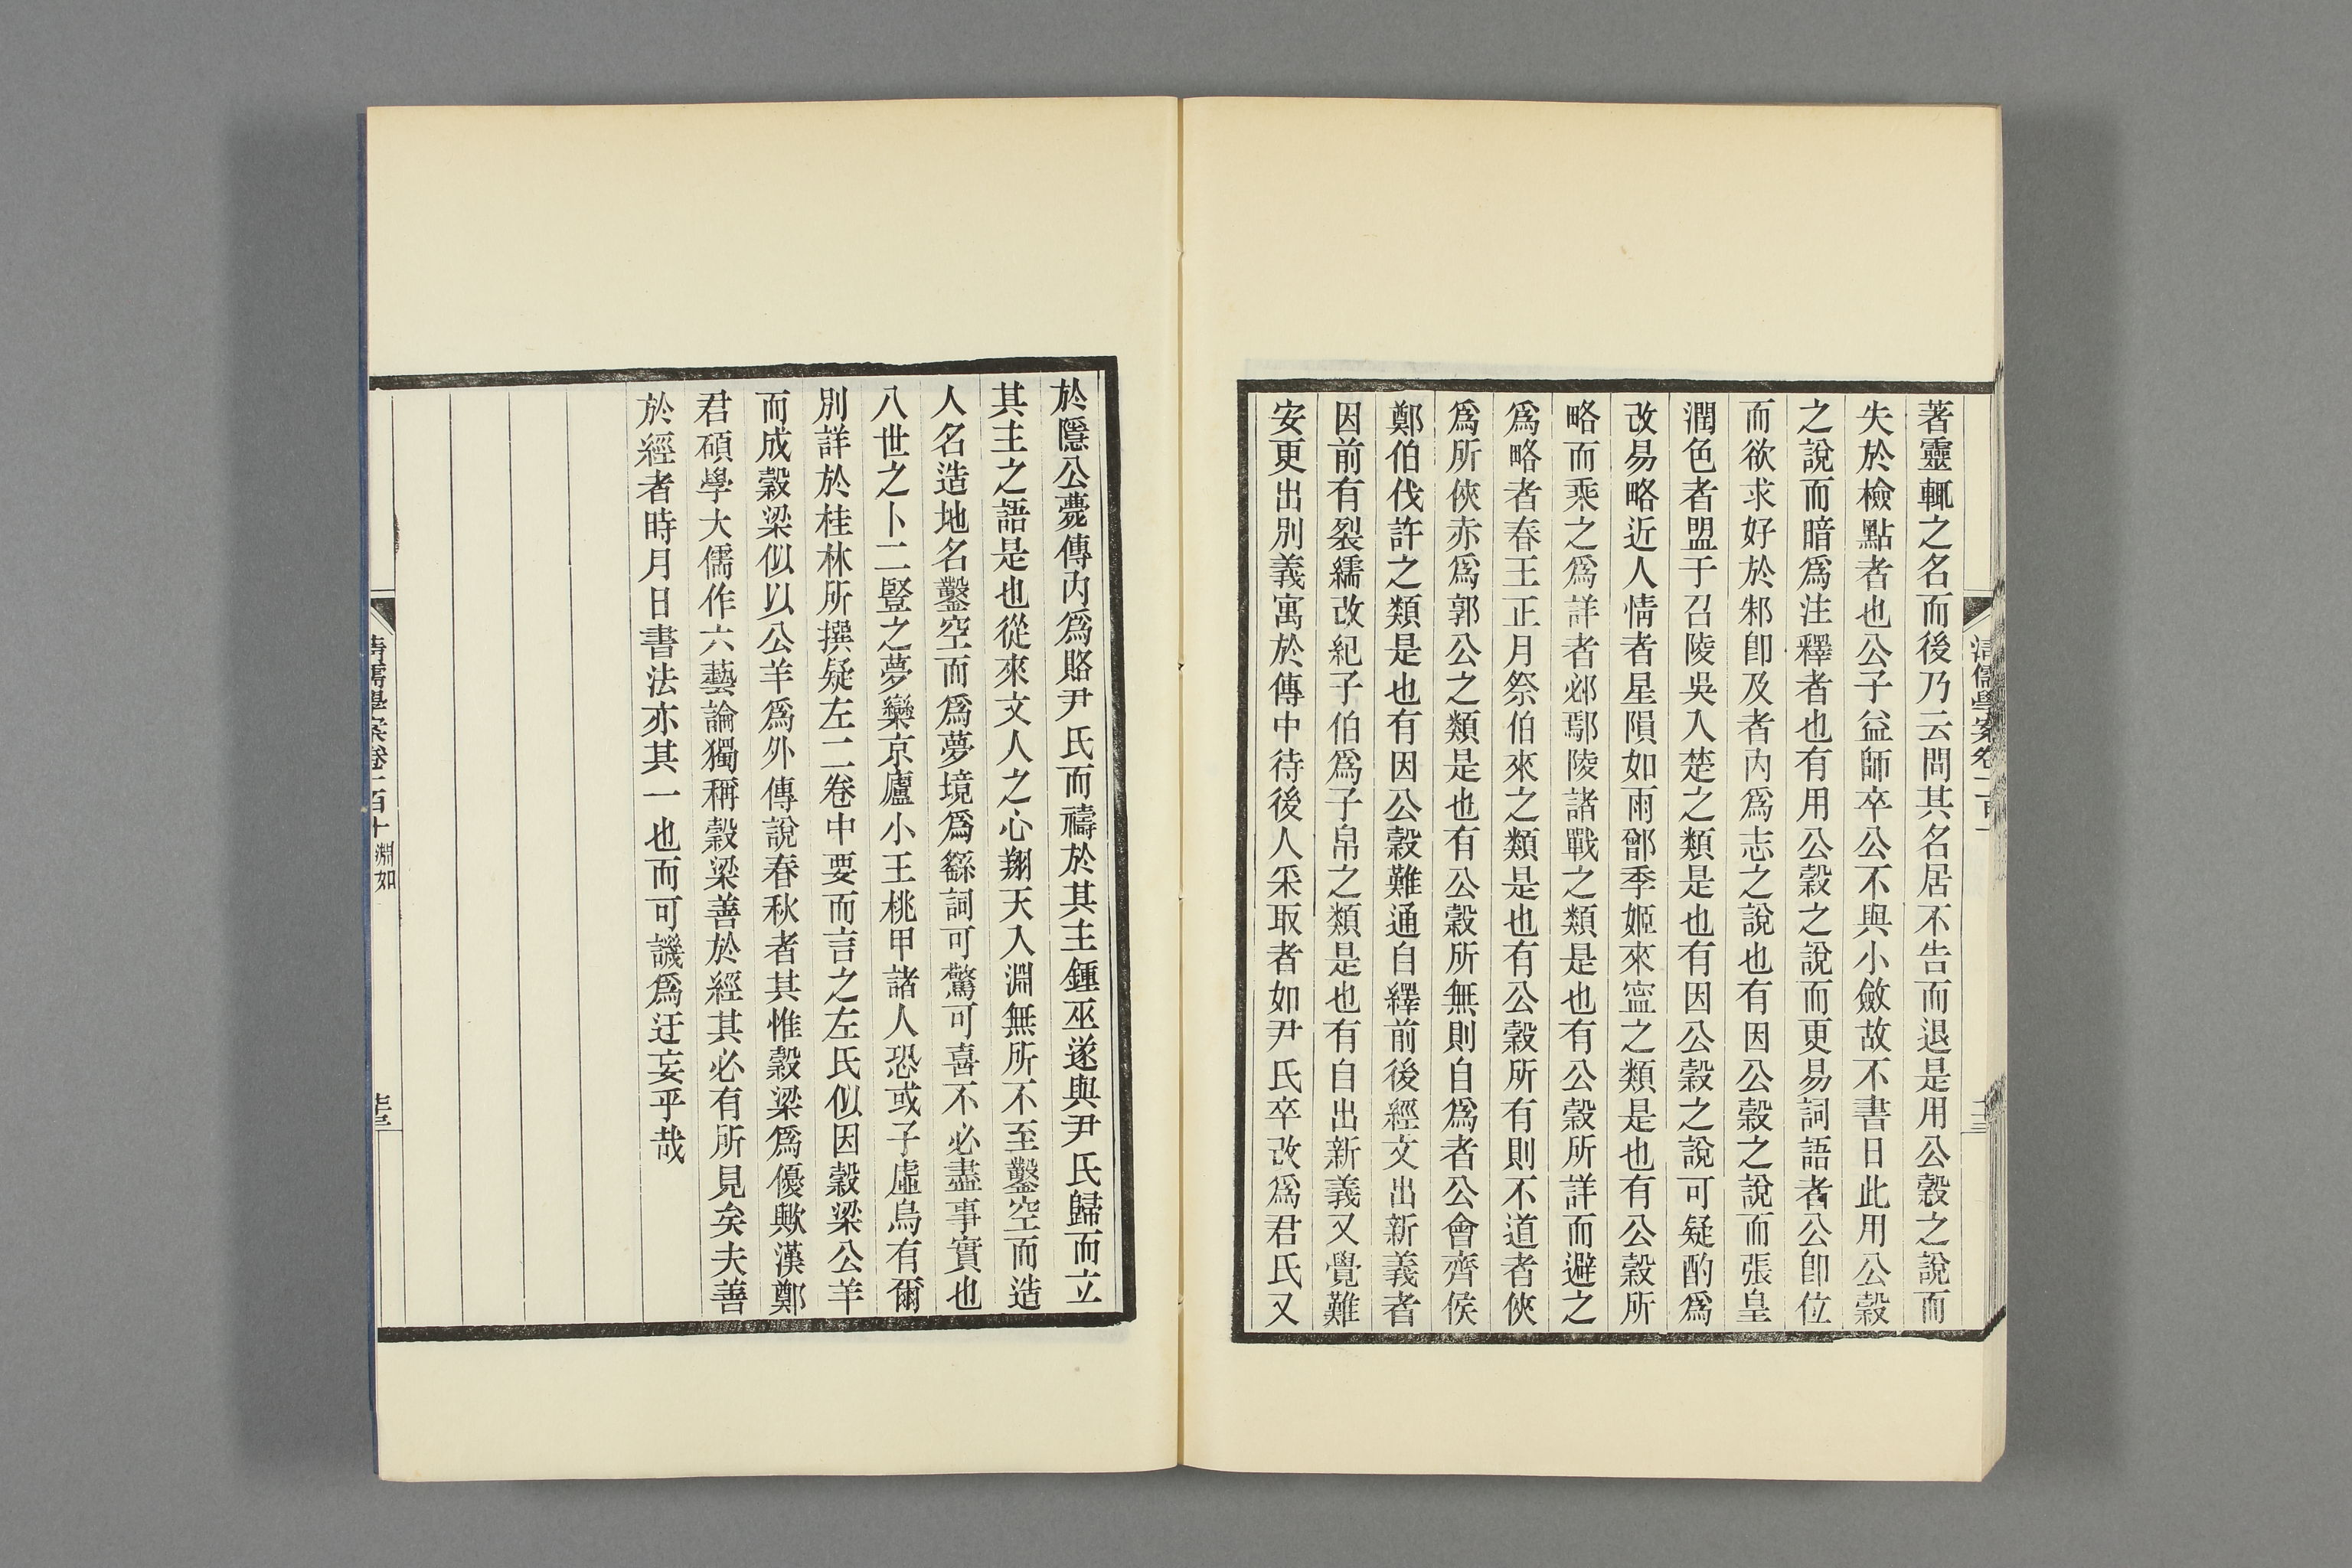 著靈輒之名而後乃云問其名居不告而退是用公穀之說而
失於檢點者也公子益師卒公不與小斂故不書日此用公穀
之說而暗爲注釋者也有用公穀之說而更易詞語者公卽位
而欲求好於邾卽及者內爲志之說也有因公穀之說而張皇
潤色者盟于召陵吳入楚之類是也有因公穀之說可疑酌爲
改易略近人情者星隕如雨鄫季姬來寧之類是也有公穀所
略而乘之爲詳者邲鄢陵諸戰之類是也有公穀所詳而避之
爲略者春王正月祭伯來之類是也有公穀所有則不道者俠
爲所俠赤爲郭公之類是也有公穀所無則自爲者公會齊侯
鄭伯伐許之類是也有因公穀難通自繹前後經文出新義者
因前有裂繻改紀子伯爲子帛之類是也有自出新義又覺難
安更出別義寓於傳中待後人采取者如尹氏卒改爲君氏又
於隱公薨傳內爲賂尹氏而禱於其主鍾巫遂與尹氏歸而立
其主之語是也從來文人之心翔天入淵無所不至鑿空而造
人名造地名鑿空而爲夢境爲繇詞可驚可喜不必盡事實也
八世之卜二豎之夢欒京廬小王桃甲諸人恐或子虛烏有爾
別詳於桂林所撰疑左二卷中要而言之左氏似因穀梁公羊
而成穀梁似以公羊爲外傳說春秋者其惟穀梁爲優歟漢鄭
君碩學大儒作六藝論獨稱穀梁善於經其必有所見矣夫善
於經者時月日書法亦其一也而可譏爲迂妄乎哉
清儒學案卷一百十 淵如